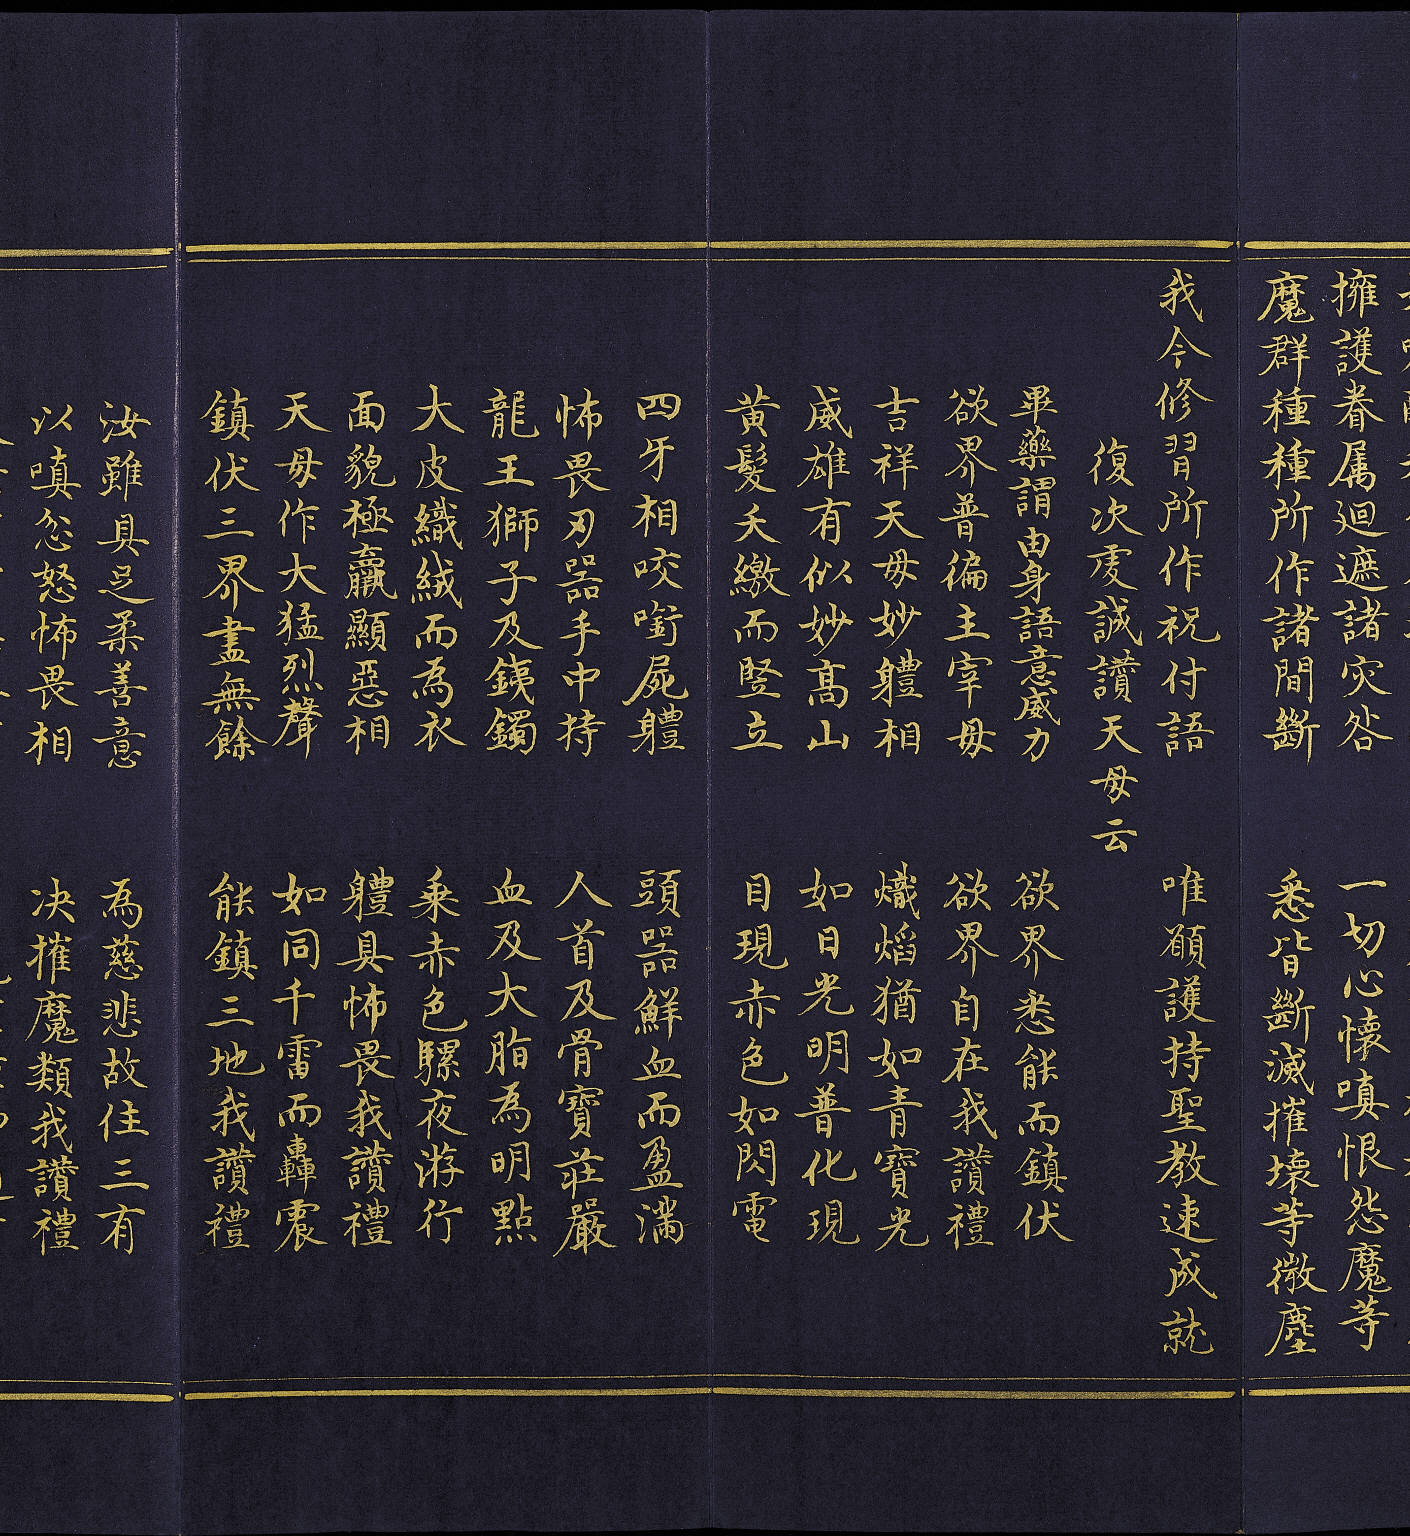 擁護眷属廻遮諸灾咎　一切心懐嗔恨怨魔等
魔群種種所作諸間斷　悉皆斷滅摧壊等微塵
我今修習所作祝付語　唯願護持聖教速成就
復次虔誠讃天母云
畢藥謂由身語意威力　欲界悉能而鎮伏
欲界普徧主宰母　欲界自在我讃禮
吉祥天母妙軆相　熾熖猶如青寶光
威雄有似妙髙山　如日光明普化現
黄髮夭繳而竪立　目現赤色如閃電
四牙相咬㘅屍軆　頭器鮮血而盈滿
怖畏刃器手中持　人首及骨寶莊嚴
龍王獅子及銕鐲　血及大脂為明點
大皮織絨而為衣　乗赤色騾夜游行
面貌極羸顯惡相　軆具怖畏我讃禮
天母作大猛烈聲　如同千雷而轟震
鎮伏三界盡無餘　能鎮三地我讃禮
汝雖具足柔善意　為慈悲故住三有
以嗔忿怒怖畏相　决摧魔類我讃禮